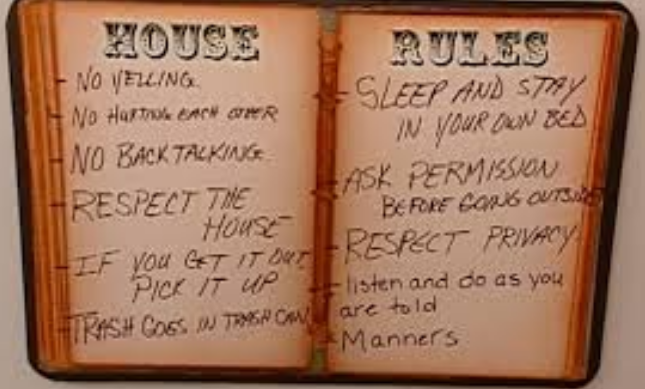 HOUSE
- NO YELLING.
- NO HURTING EACH OTHER
- NO BACKTALKING.
- RESPECT THE
HOUSE
- IF YOU GET IT OUT
PICK IT UP
- TRASH GOES IN TRASH CAN
RULES
- SLEEP AND STAY
IN YOUR OWN BED
- ASK PERMISSION
BEFORE GOING OUTSIDE
- RESPECT PRIVACY
- listen and do as you
are told
- Manners